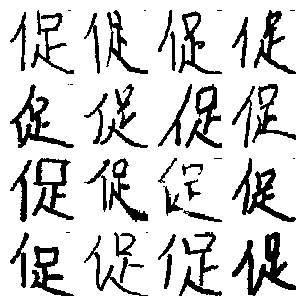 促促促促
促促促促
促促促促
促促促促